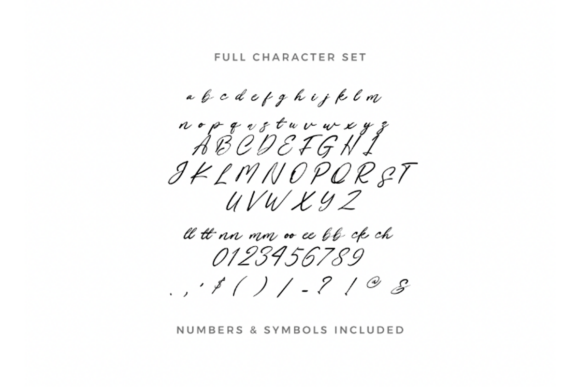 FULL CHARACTER SET
a b c d e f g h i j k l m
n o p q r s t u v w x y z
A B C D E F G H I
J K L M N O P Q R S T
U V W X Y Z
ll tt nn mm oo ee bb ck ch
0 1 2 3 4 5 6 7 8 9
. , ' $ ( ) / - ? ! @ &
NUMBERS & SYMBOLS INCLUDED